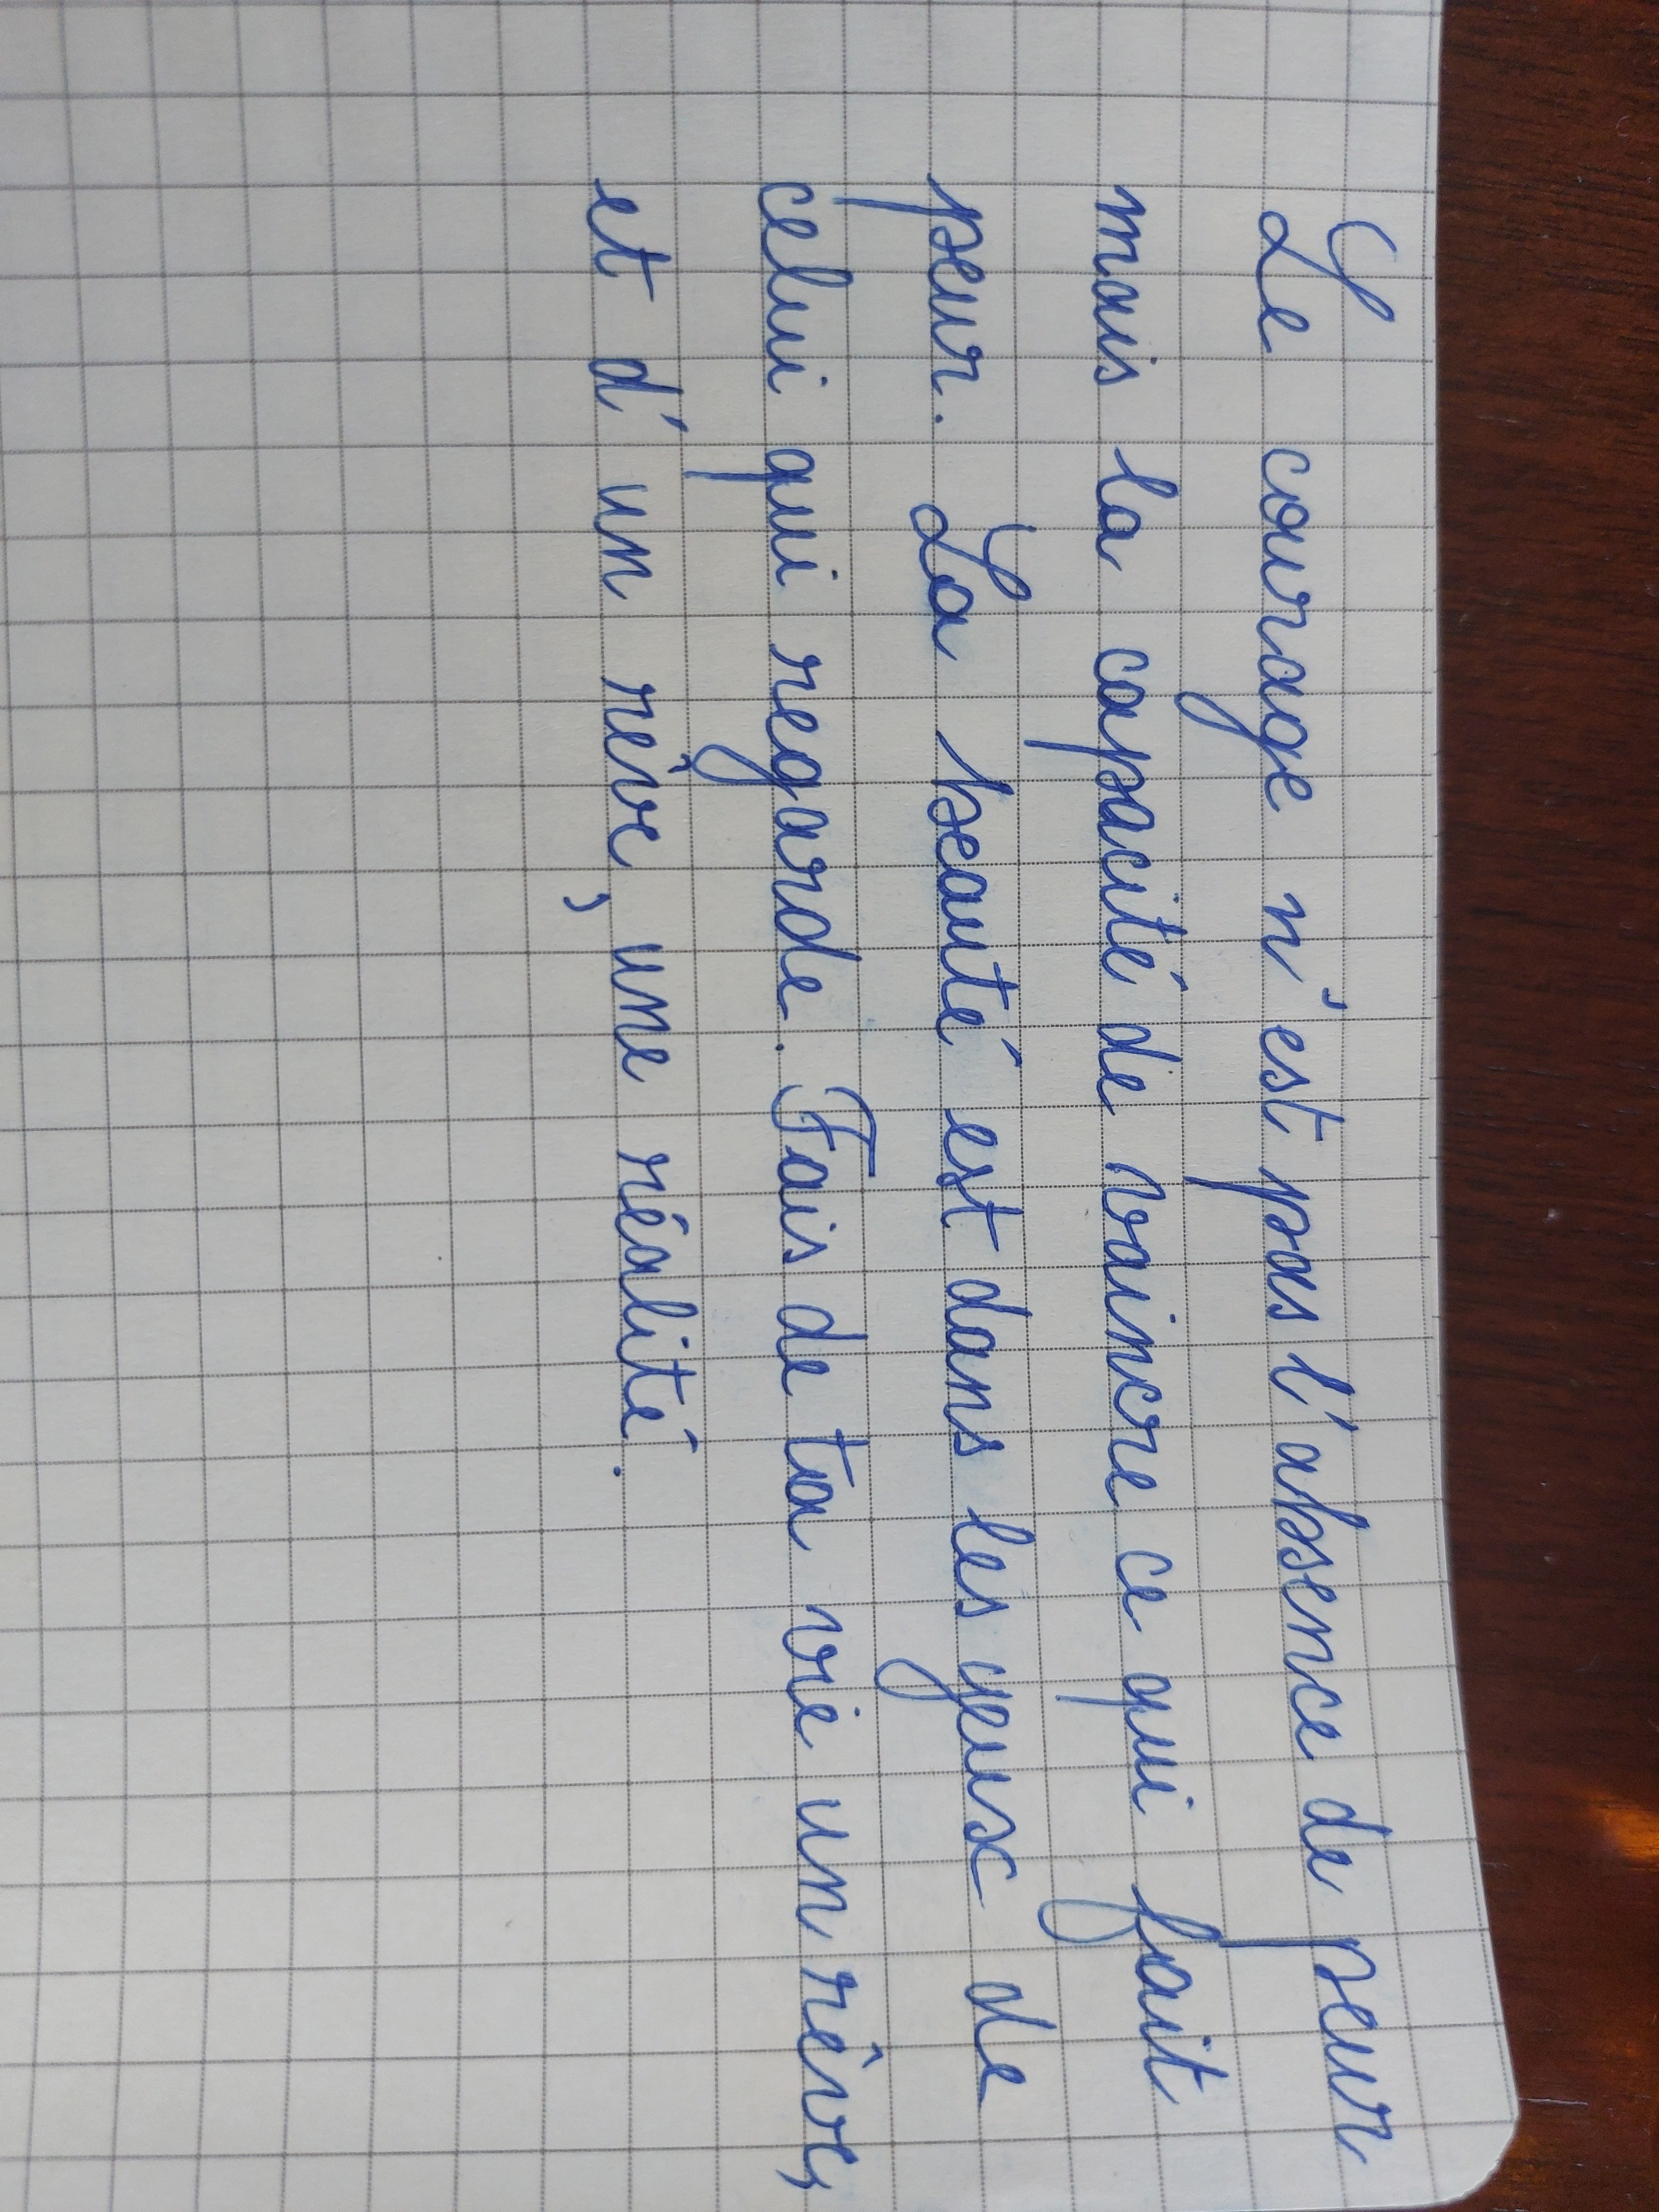 Le courage n'est pas l'absence de peur
mais la capacité de vaincre ce qui fait
peur. La beauté est dans les yeux de
celui qui regarde. Fais de ta vie un rêve,
et d'un rêve, une réalité.